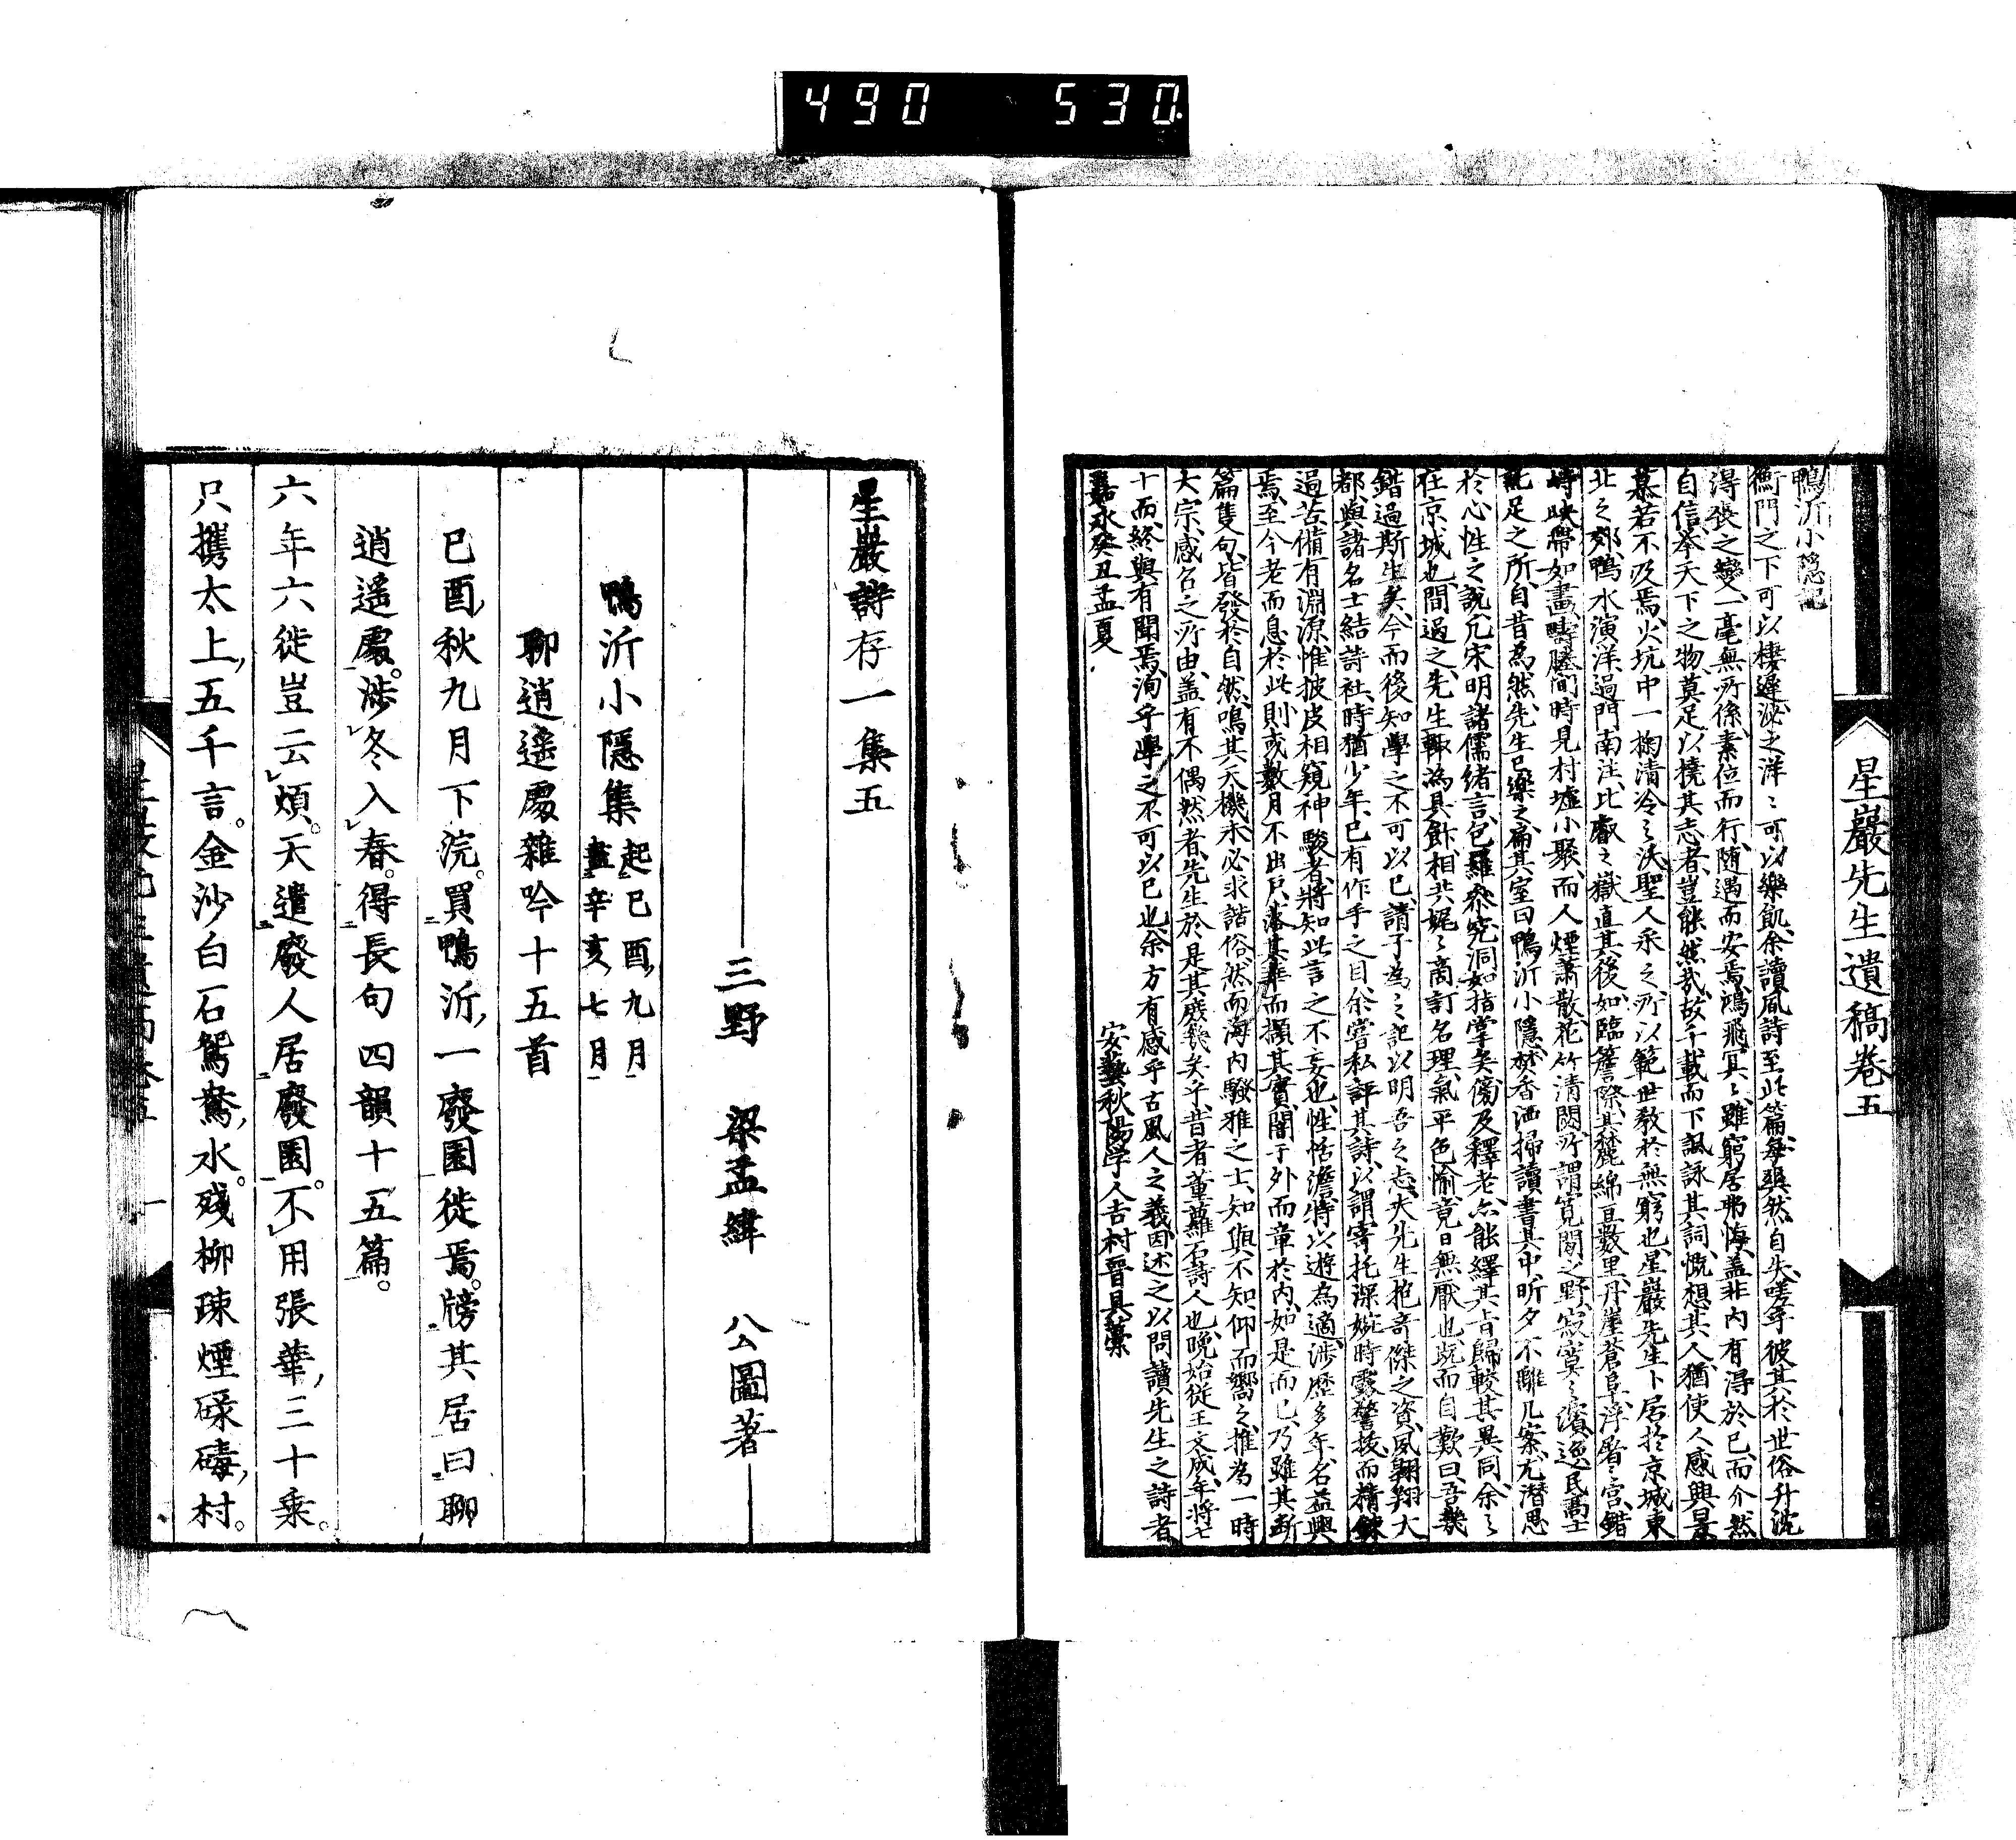 490 530
星巖先生遺稿卷五
鴨沂小隱記
衡門之下可以棲遲泌之洋〻可以樂飢余讀風詩至此篇每爽然自失嗟乎彼其於世俗升沈
得喪之變一毫無所係素位而行随遇而安焉鴻飛冥〻雖窮居弗悔蓋非内有得於已而介然
自信舉天下之物莫足以撓其志者豈能然哉故千載而下諷詠其詞慨想其人猶使人感興景
慕若不及焉火坑中一掬清冷之沃聖人采之所以範世敎於無窮也星巖先生卜居於京城東
北之郊鴨水演洋過門南注比叡之嶽直其後如臨簷際其麓綿亘數里丹崖蒼阜浮屠之宮錯
峙映帶如畫疇塍間時見村墟小聚而人煙蕭散花竹清閟所謂寬閒之野寂寞之濱逸民高士
託足之所自昔為然先生已樂之扁其室曰鴨沂小隱焚香洒掃讀書其中昕夕不離几案尤潛思
於心性之說凡宋明諸儒緒言包羅參究洞如指掌矣傍及釋老亦能繹其旨歸較其異同余之
在京城也間過之先生輙為具飭相共娓〻商訂名理氣平色愉竟日無厭也既而自歎曰吾幾
錯過斯生矣今而後知學之不可以已請子為之記以明吾之志夫先生抱奇傑之資夙翺翔大
都與諸名士結詩社時猶少年已有作手之目余嘗私評其詩以謂寄托深婉時露警拔而精錬
過苦備有淵源惟披皮相窺神駿者將知此言之不妄也性恬澹特以遊為適涉歷多年名益興
焉至今老而息於此則或數月不出戶落其華而擷其實闇于外而章於内如是而已乃雖其斷
篇隻句皆發於自然鳴其天機未必求諧俗然而海内騷雅之士知與不知仰而嚮之推為一時
大宗感召之所由蓋有不偶然者先生於是其庶幾矣乎昔者董蘿石詩人也晚始從王文成年將七
十而終與有聞焉洵乎學之不可以已也余方有感乎古風人之義因述之以問讀先生之詩者
嘉永癸丑孟夏
安藝秋陽学人吉村晉具藁
星巖詩存一集五
三野　梁孟緯　公圖著
鴨沂小隱集 起己酉九月 盡辛亥七月
聊逍遙處雜吟十五首
已酉秋九月下浣。買鴨沂一廢園徙焉。牓其居曰聊
逍遙處。涉冬入春。得長句四韻十五篇。
六年六徙豈云煩。天遣廢人居廢園。不用張華三十乘。
只攜太上五千言。金沙白石鴛鴦水。殘柳疎煙碌碡村。
一